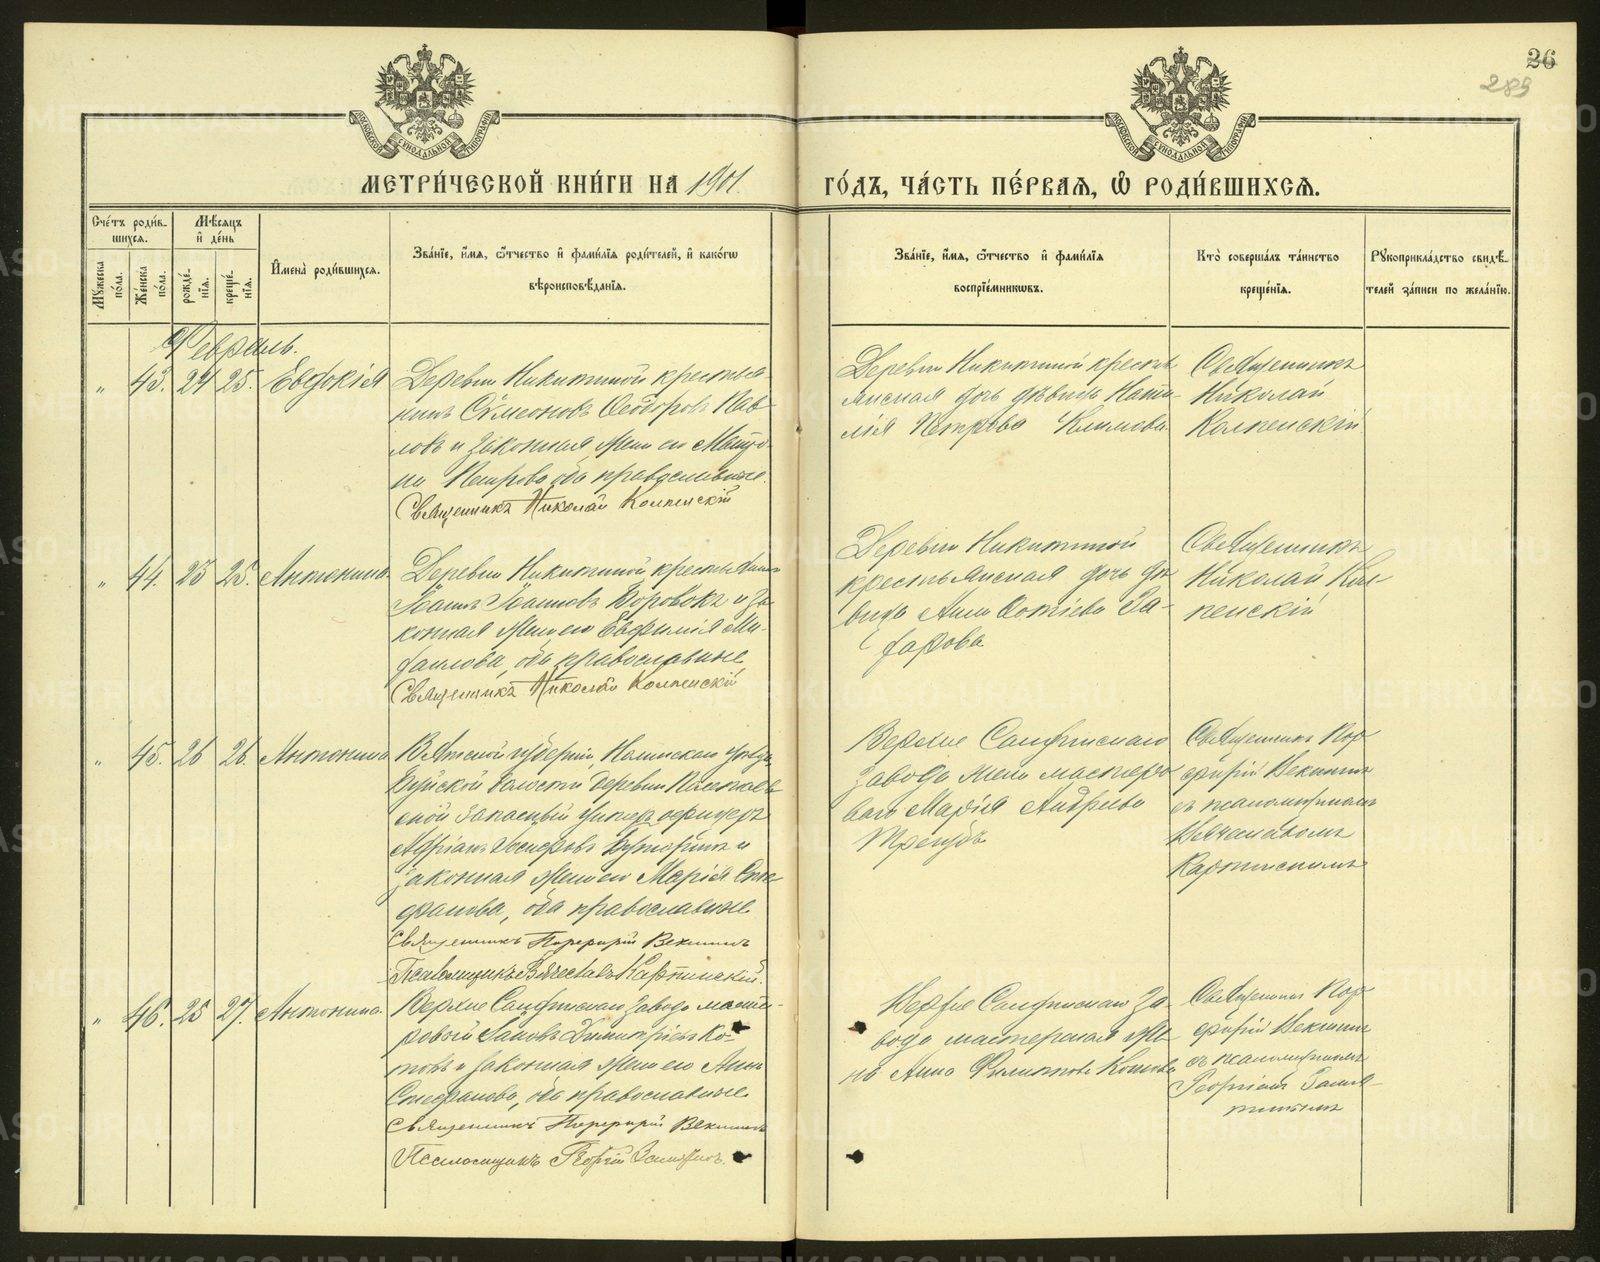 26
289
МОСКОВСКОЙ СѴНОДАЛЬНОЙ ТИПОГРАФІИ
МОСКОВСКОЙ СѴНОДАЛЬНОЙ ТИПОГРАФІИ
МЕТРИ́ЧЕСКОЙ КНИ́ГИ НА 1901
ГО́ДЪ, ЧА́СТЬ ПЕ́РВАѦ, Ѽ РОДИ́ВШИХСѦ.
Сче́тъ роди́в-
шихся.
Мѣ́сяцъ
и҆ де́нь
Мꙋ́жеска по́ла.
Же́нска по́ла.
рожде́-
нїѧ.
креще́-
нїѧ.
И҆мена̀ роди́вшихсѧ.
Зва́нїе, и҆́мѧ, ѻ҆́тчество и҆ фами́лїѧ роди́телей, и҆ како́гѡ
вѣроисповѣ́данїѧ.
Зва́нїе, и҆́мѧ, ѻ҆́тчество и҆ фами́лїѧ
воспрїе́мникѡвъ.
Кто̀ соверша́лъ та́инство
креще́нїѧ.
Рꙋкоприкла́дство свидѣ́-
телей за́писи по жела́нїю.
Февраль.
" 43. 24 25. Евдокія
Деревни Никитиной крестья-
нинъ Симеоновъ Ѳеодоровъ Пав
ловъ и законная жена его Матро-
на Петрова, оба православные.
Священникъ Николай Колпенскій
Деревни Никитиной кресть
янская дочь дѣвица Ната-
лія Петрова Климова.
Священникъ
Николай
Колпенскій
" 44. 23 25. Антонина
Деревни Никитиной крестьянинъ
Іоаннъ Іоанновъ Боровокъ и за
конная жена его Евфимія Ми-
хаилова, оба православные
Священникъ Николай Колпенскій
Деревни Никитиной
крестьянская дочь дѣ
вица Анна Фотіева За-
харова
Священникъ
Николай Кол
пенскій
" 45. 26 26. Антонина
Вятской губерніи, Нолинскаго уѣзда,
Буйской волости деревни
запасный унтеръ офицеръ
Адріанъ Іосифовъ и
законная жена его Марія Сте
фанова, оба православные
Священникъ Порфирій Векшинъ
Псаломщикъ Вячеславъ Карпинскій
Верхне Салдинскаго
завода жена мастеро
ваго Марія Андреева
Трегубъ
Священникъ Пор
фирій Векшинъ
съ псаломщикомъ
Вячеславомъ
Карпинскимъ
" 46. 25 27. Антонина.
Верхне Салдинскаго завода масте-
ровой Димитріевъ Ко-
товъ и законная жена его Анна
Стефанова, оба православные
Священникъ Порфирій Векшинъ
Псаломщикъ Георгій
Верхне Салдинскаго за
вода мастерская же-
на Анна Филиппова Котова
Священникъ Пор
фирій Векшинъ
съ псаломщикомъ
Георгіемъ